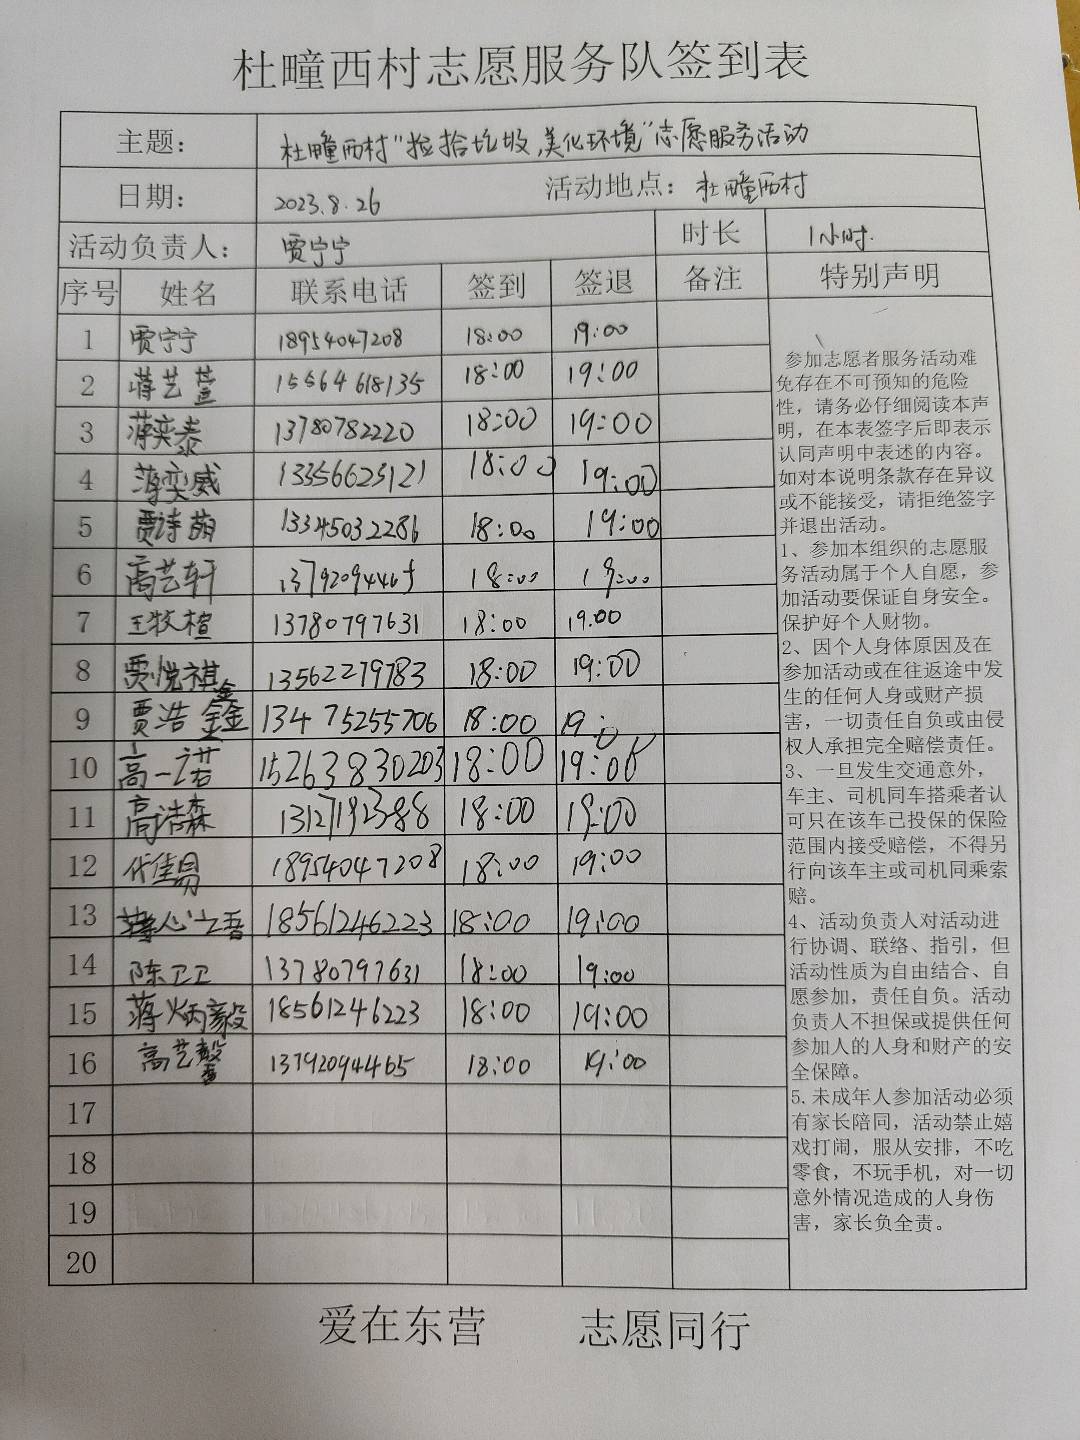 杜疃西村志愿服务队签到表
主题： 杜疃西村“捡拾垃圾，美化环境”志愿服务活动
日期： 2023.8.26 活动地点：杜疃西村
活动负责人： 贾宁宁 时长 1小时.
序号 姓名 联系电话 签到 签退 备注 特别声明
1 贾宁宁 18954047208 18:00 19:00
2 蒋艺萱 15564618135 18:00 19:00
3 薄奕泰 13780782220 18:00 19:00
4 薄奕威 13356625121 18:00 19:00
5 贾诗萌 13345032286 18:00 19:00
6 高艺轩 18:00 19:00
7 王牧楦 13780797631 18:00 19.00
8 贾悦祺 13562279783 18:00 19:00
9 贾浩鑫 13475255706 18:00
10 高一诺 15263830203 18:00 19:00
11 高浩森 18:00 19:00
12 代佳易 18954047208 18:00 19:00
13 18561246223 18:00 19:00
14 陈卫卫 13780797631 18:00 19:00
15 蒋炳毅 18561246223 18:00 19:00
16 高艺馨 13792094465 18:00 19:00
17
18
19
20
参加志愿者服务活动难
免存在不可预知的危险
性，请务必仔细阅读本声
明，在本表签字后即表示
认同声明中表述的内容。
如对本说明条款存在异议
或不能接受，请拒绝签字
并退出活动。
1、参加本组织的志愿服
务活动属于个人自愿，参
加活动要保证自身安全。
保护好个人财物。
2、因个人身体原因及在
参加活动或在往返途中发
生的任何人身或财产损
害，一切责任自负或由侵
权人承担完全赔偿责任。
3、一旦发生交通意外，
车主、司机同车搭乘者认
可只在该车已投保的保险
范围内接受赔偿，不得另
行向该车主或司机同乘索
赔。
4、活动负责人对活动进
行协调、联络、指引，但
活动性质为自由结合、自
愿参加，责任自负。活动
负责人不担保或提供任何
参加人的人身和财产的安
全保障。
5.未成年人参加活动必须
有家长陪同，活动禁止嬉
戏打闹，服从安排，不吃
零食，不玩手机，对一切
意外情况造成的人身伤
害，家长负全责。
爱在东营 志愿同行